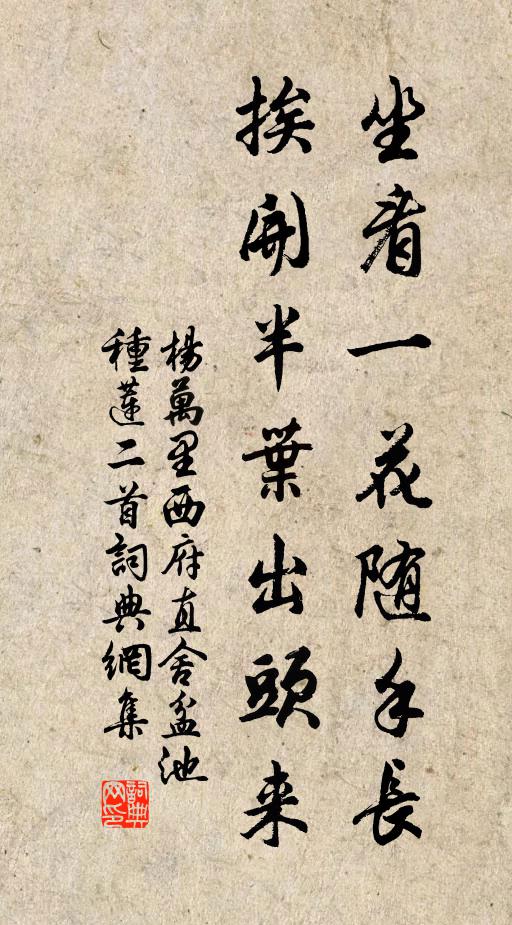 坐看一花随手長
挨開半葉出頭来
楊萬里西府直舍盆池
種蓮二首詞典網集
詞典
网印